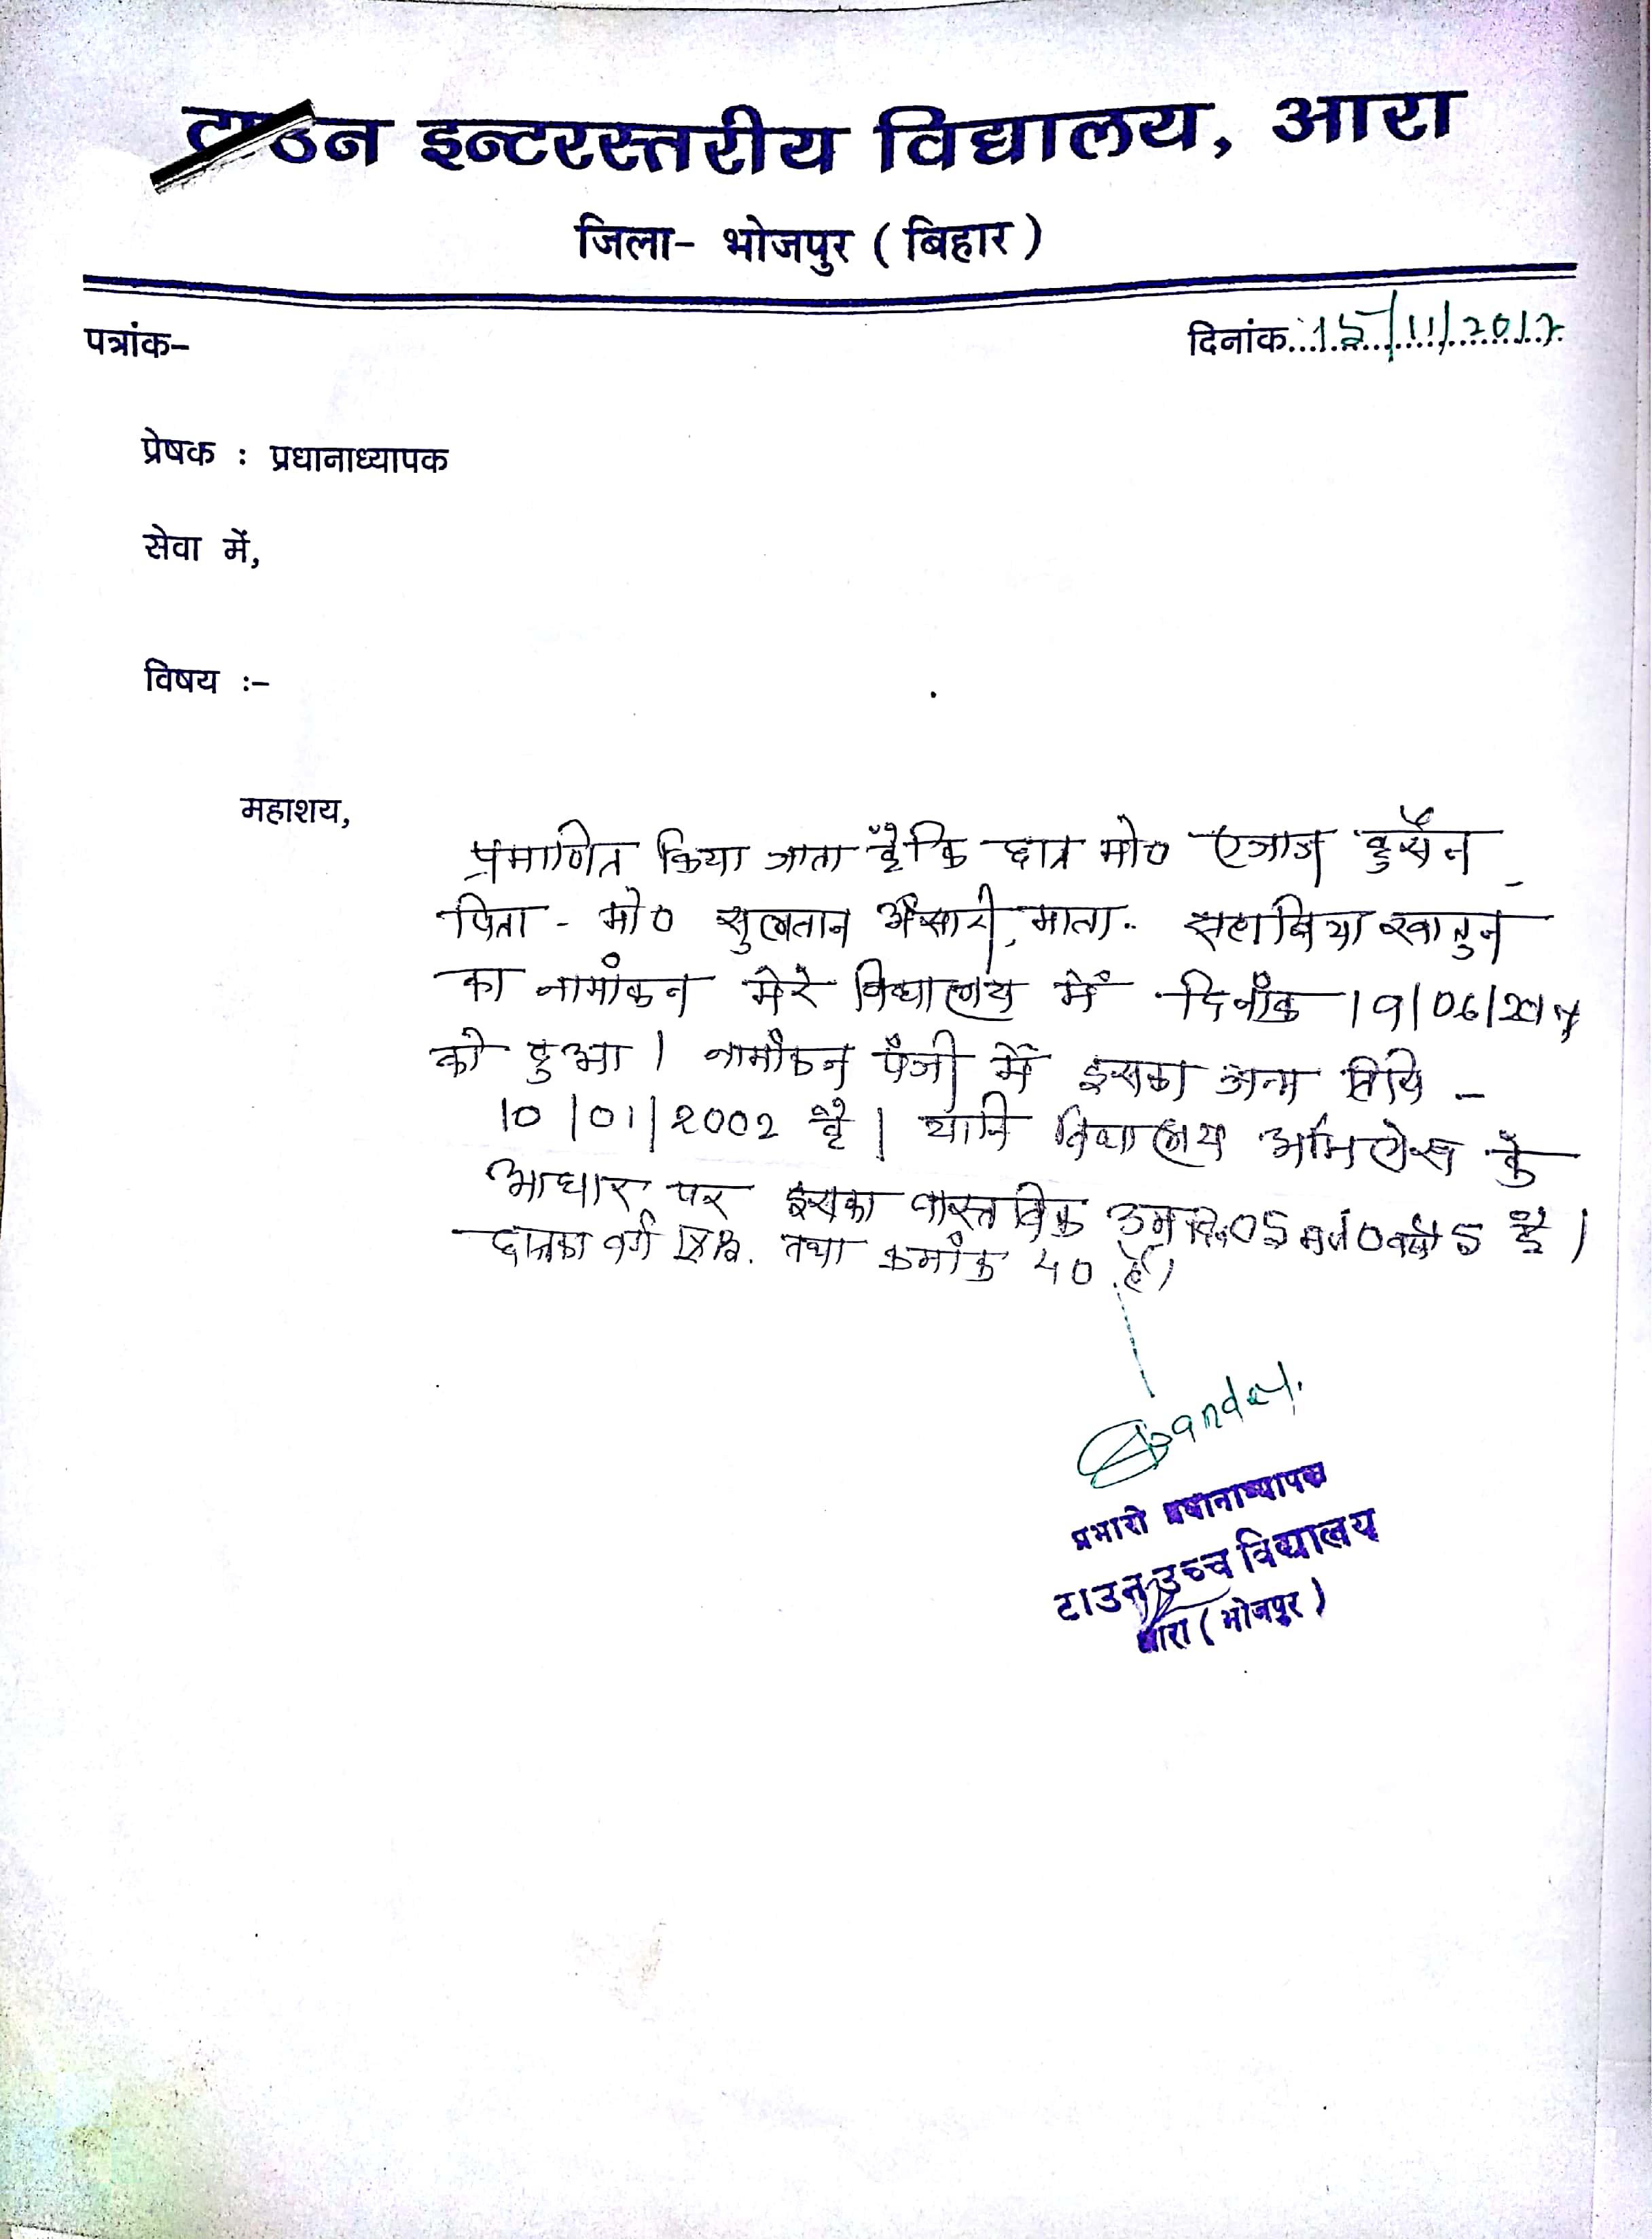 टाउन इन्टरस्तरीय विद्यालय, आरा
जिला- भोजपुर ( बिहार )
पत्रांक-
दिनांक 15/11/2017
प्रेषक : प्रधानाध्यापक
सेवा में,
विषय :-
महाशय,
प्रमाणित किया जाता है कि छात्र मो० एजाज हुसैन
पिता - मो० सुलतान अंसारी, माता- खातुन
का नामांकन मेरे विद्यालय में दिनांक 19/06/2017
को हुआ । नामांकन पंजी में इसका जन्म तिथि -
10/01/2002 है । यानि विद्यालय अभिलेख के
आधार पर इसका वास्तविक उम्र 05 10 है ।
छात्रका वर्ग तथा क्रमांक 40 है।
प्रभारी प्रधानाध्यापक
टाउन उच्च विद्यालय
आरा ( भोजपुर )